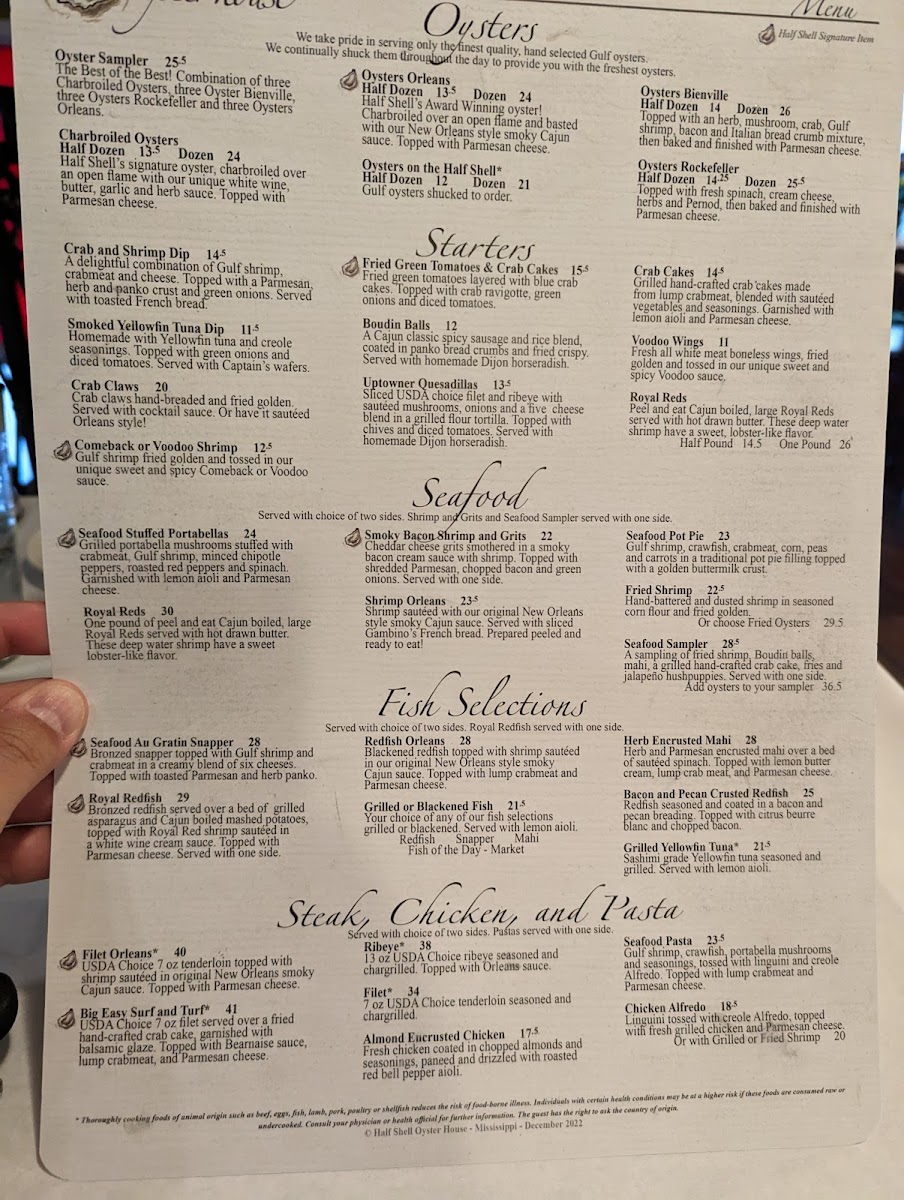 Menu
Half Shell Signature Item
Oysters
We take pride in serving only the finest quality, hand selected Gulf oysters.
We continually shuck them throughout the day to provide you with the freshest oysters.
Oyster Sampler 25.5
The Best of the Best! Combination of three
Charbroiled Oysters, three Oyster Bienville,
three Oysters Rockefeller and three Oysters
Orleans.
Charbroiled Oysters
Half Dozen 13.5 Dozen 24
Half Shell's signature oyster, charbroiled over
an open flame with our unique white wine,
butter, garlic and herb sauce. Topped with
Parmesan cheese.
Oysters Orleans
Half Dozen 13.5 Dozen 24
Half Shell's Award Winning oyster!
Charbroiled over an open flame and basted
with our New Orleans style smoky Cajun
sauce. Topped with Parmesan cheese.
Oysters on the Half Shell*
Half Dozen 12 Dozen 21
Gulf oysters shucked to order.
Oysters Bienville
Half Dozen 14 Dozen 26
Topped with an herb, mushroom, crab, Gulf
shrimp, bacon and Italian bread crumb mixture,
then baked and finished with Parmesan cheese.
Oysters Rockefeller
Half Dozen 14.25 Dozen 25.5
Topped with fresh spinach, cream cheese,
herbs and Pernod, then baked and finished with
Parmesan cheese.
Starters
Crab and Shrimp Dip 14.5
A delightful combination of Gulf shrimp,
crabmeat and cheese. Topped with a Parmesan,
herb and panko crust and green onions. Served
with toasted French bread.
Smoked Yellowfin Tuna Dip 11.5
Homemade with Yellowfin tuna and creole
seasonings. Topped with green onions and
diced tomatoes. Served with Captain's wafers.
Crab Claws 20
Crab claws hand-breaded and fried golden.
Served with cocktail sauce. Or have it sautéed
Orleans style!
Comeback or Voodoo Shrimp 12.5
Gulf shrimp fried golden and tossed in our
unique sweet and spicy Comeback or Voodoo
sauce.
Fried Green Tomatoes & Crab Cakes 15.5
Fried green tomatoes layered with blue crab
cakes. Topped with crab ravigotte, green
onions and diced tomatoes.
Boudin Balls 12
A Cajun classic spicy sausage and rice blend,
coated in panko bread crumbs and fried crispy.
Served with homemade Dijon horseradish.
Uptowner Quesadillas 13.5
Sliced USDA choice filet and ribeye with
sautéed mushrooms, onions and a five cheese
blend in a grilled flour tortilla. Topped with
chives and diced tomatoes. Served with
homemade Dijon horseradish.
Crab Cakes 14.5
Grilled hand-crafted crab cakes made
from lump crabmeat, blended with sautéed
vegetables and seasonings. Garnished with
lemon aioli and Parmesan cheese.
Voodoo Wings 11
Fresh all white meat boneless wings, fried
golden and tossed in our unique sweet and
spicy Voodoo sauce.
Royal Reds
Peel and eat Cajun boiled, large Royal Reds
served with hot drawn butter. These deep water
shrimp have a sweet, lobster-like flavor.
Half Pound 14.5 One Pound 26
Seafood
Served with choice of two sides. Shrimp and Grits and Seafood Sampler served with one side.
Seafood Stuffed Portabellas 24
Grilled portabella mushrooms stuffed with
crabmeat, Gulf shrimp, minced chipotle
peppers, roasted red peppers and spinach.
Garnished with lemon aioli and Parmesan
cheese.
Royal Reds 30
One pound of peel and eat Cajun boiled, large
Royal Reds served with hot drawn butter.
These deep water shrimp have a sweet
lobster-like flavor.
Smoky Bacon Shrimp and Grits 22
Cheddar cheese grits smothered in a smoky
bacon cream sauce with shrimp. Topped with
shredded Parmesan, chopped bacon and green
onions. Served with one side.
Shrimp Orleans 23.5
Shrimp sautéed with our original New Orleans
style smoky Cajun sauce. Served with sliced
Gambino's French bread. Prepared peeled and
ready to eat!
Seafood Pot Pie 23
Gulf shrimp, crawfish, crabmeat, corn, peas
and carrots in a traditional pot pie filling topped
with a golden buttermilk crust.
Fried Shrimp 22.5
Hand-battered and dusted shrimp in seasoned
corn flour and fried golden.
Or choose Fried Oysters 29.5
Seafood Sampler 28.5
A sampling of fried shrimp, Boudin balls,
mahi, a grilled hand-crafted crab cake, fries and
jalapeño hushpuppies. Served with one side.
Add oysters to your sampler 36.5
Fish Selections
Served with choice of two sides. Royal Redfish served with one side.
Seafood Au Gratin Snapper 28
Bronzed snapper topped with Gulf shrimp and
crabmeat in a creamy blend of six cheeses.
Topped with toasted Parmesan and herb panko.
Royal Redfish 29
Bronzed redfish served over a bed of grilled
asparagus and Cajun boiled mashed potatoes,
topped with Royal Red shrimp sautéed in
a white wine cream sauce. Topped with
Parmesan cheese. Served with one side.
Redfish Orleans 28
Blackened redfish topped with shrimp sautéed
in our original New Orleans style smoky
Cajun sauce. Topped with lump crabmeat and
Parmesan cheese.
Grilled or Blackened Fish 21.5
Your choice of any of our fish selections
grilled or blackened. Served with lemon aioli.
Redfish Snapper Mahi
Fish of the Day - Market
Herb Encrusted Mahi 28
Herb and Parmesan encrusted mahi over a bed
of sautéed spinach. Topped with lemon butter
cream, lump crab meat, and Parmesan cheese.
Bacon and Pecan Crusted Redfish 25
Redfish seasoned and coated in a bacon and
pecan breading. Topped with citrus beurre
blanc and chopped bacon.
Grilled Yellowfin Tuna* 21.5
Sashimi grade Yellowfin tuna seasoned and
grilled. Served with lemon aioli.
Steak, Chicken, and Pasta
Served with choice of two sides. Pastas served with one side.
Filet Orleans* 40
USDA Choice 7 oz tenderloin topped with
shrimp sautéed in original New Orleans smoky
Cajun sauce. Topped with Parmesan cheese.
Big Easy Surf and Turf* 41
USDA Choice 7 oz filet served over a fried
hand-crafted crab cake, garnished with
balsamic glaze. Topped with Bearnaise sauce,
lump crabmeat, and Parmesan cheese.
Ribeye* 38
13 oz USDA Choice ribeye seasoned and
chargrilled. Topped with Orleans sauce.
Filet* 34
7 oz USDA Choice tenderloin seasoned and
chargrilled.
Almond Encrusted Chicken 17.5
Fresh chicken coated in chopped almonds and
seasonings, paneed and drizzled with roasted
red bell pepper aioli.
Seafood Pasta 23.5
Gulf shrimp, crawfish, portabella mushrooms
and seasonings, tossed with linguini and creole
Alfredo. Topped with lump crabmeat and
Parmesan cheese.
Chicken Alfredo 18.5
Linguini tossed with creole Alfredo, topped
with fresh grilled chicken and Parmesan cheese.
Or with Grilled or Fried Shrimp 20
* Thoroughly cooking foods of animal origin such as beef, eggs, fish, lamb, pork, poultry or shellfish reduces the risk of food-borne illness. Individuals with certain health conditions may be at higher risk if these foods are consumed raw or
undercooked. Consult your physician or health official for further information. The guest has the right to ask the country of origin.
© Half Shell Oyster House - Mississippi - December 2022